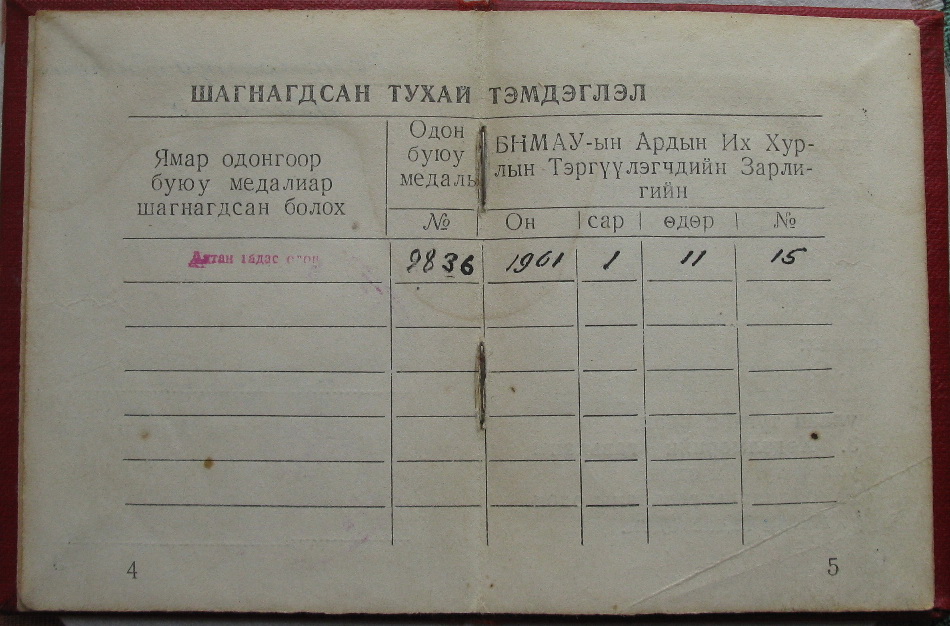 ШАГНАГДСАН ТУХАЙ ТЭМДЭГЛЭЛ
Ямар одонгоор
буюу медалиар
шагнагдсан болох
Одон
буюу
медаль
№
БНМАУ-ын Ардын Их Хур-
лын Тэргүүлэгчдийн Зарли-
гийн
Он сар өдөр №
Алтан гадас одон 9836 1961 1 11 15
4
5